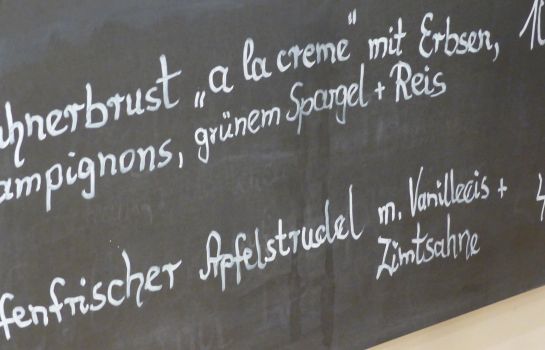 uhnerbrust „a la creme" mit Erbsen, 10
ampignons, grünem Spargel + Reis
fenfrischer Apfelstrudel m. Vanilleeis + 4
Zimtsahne